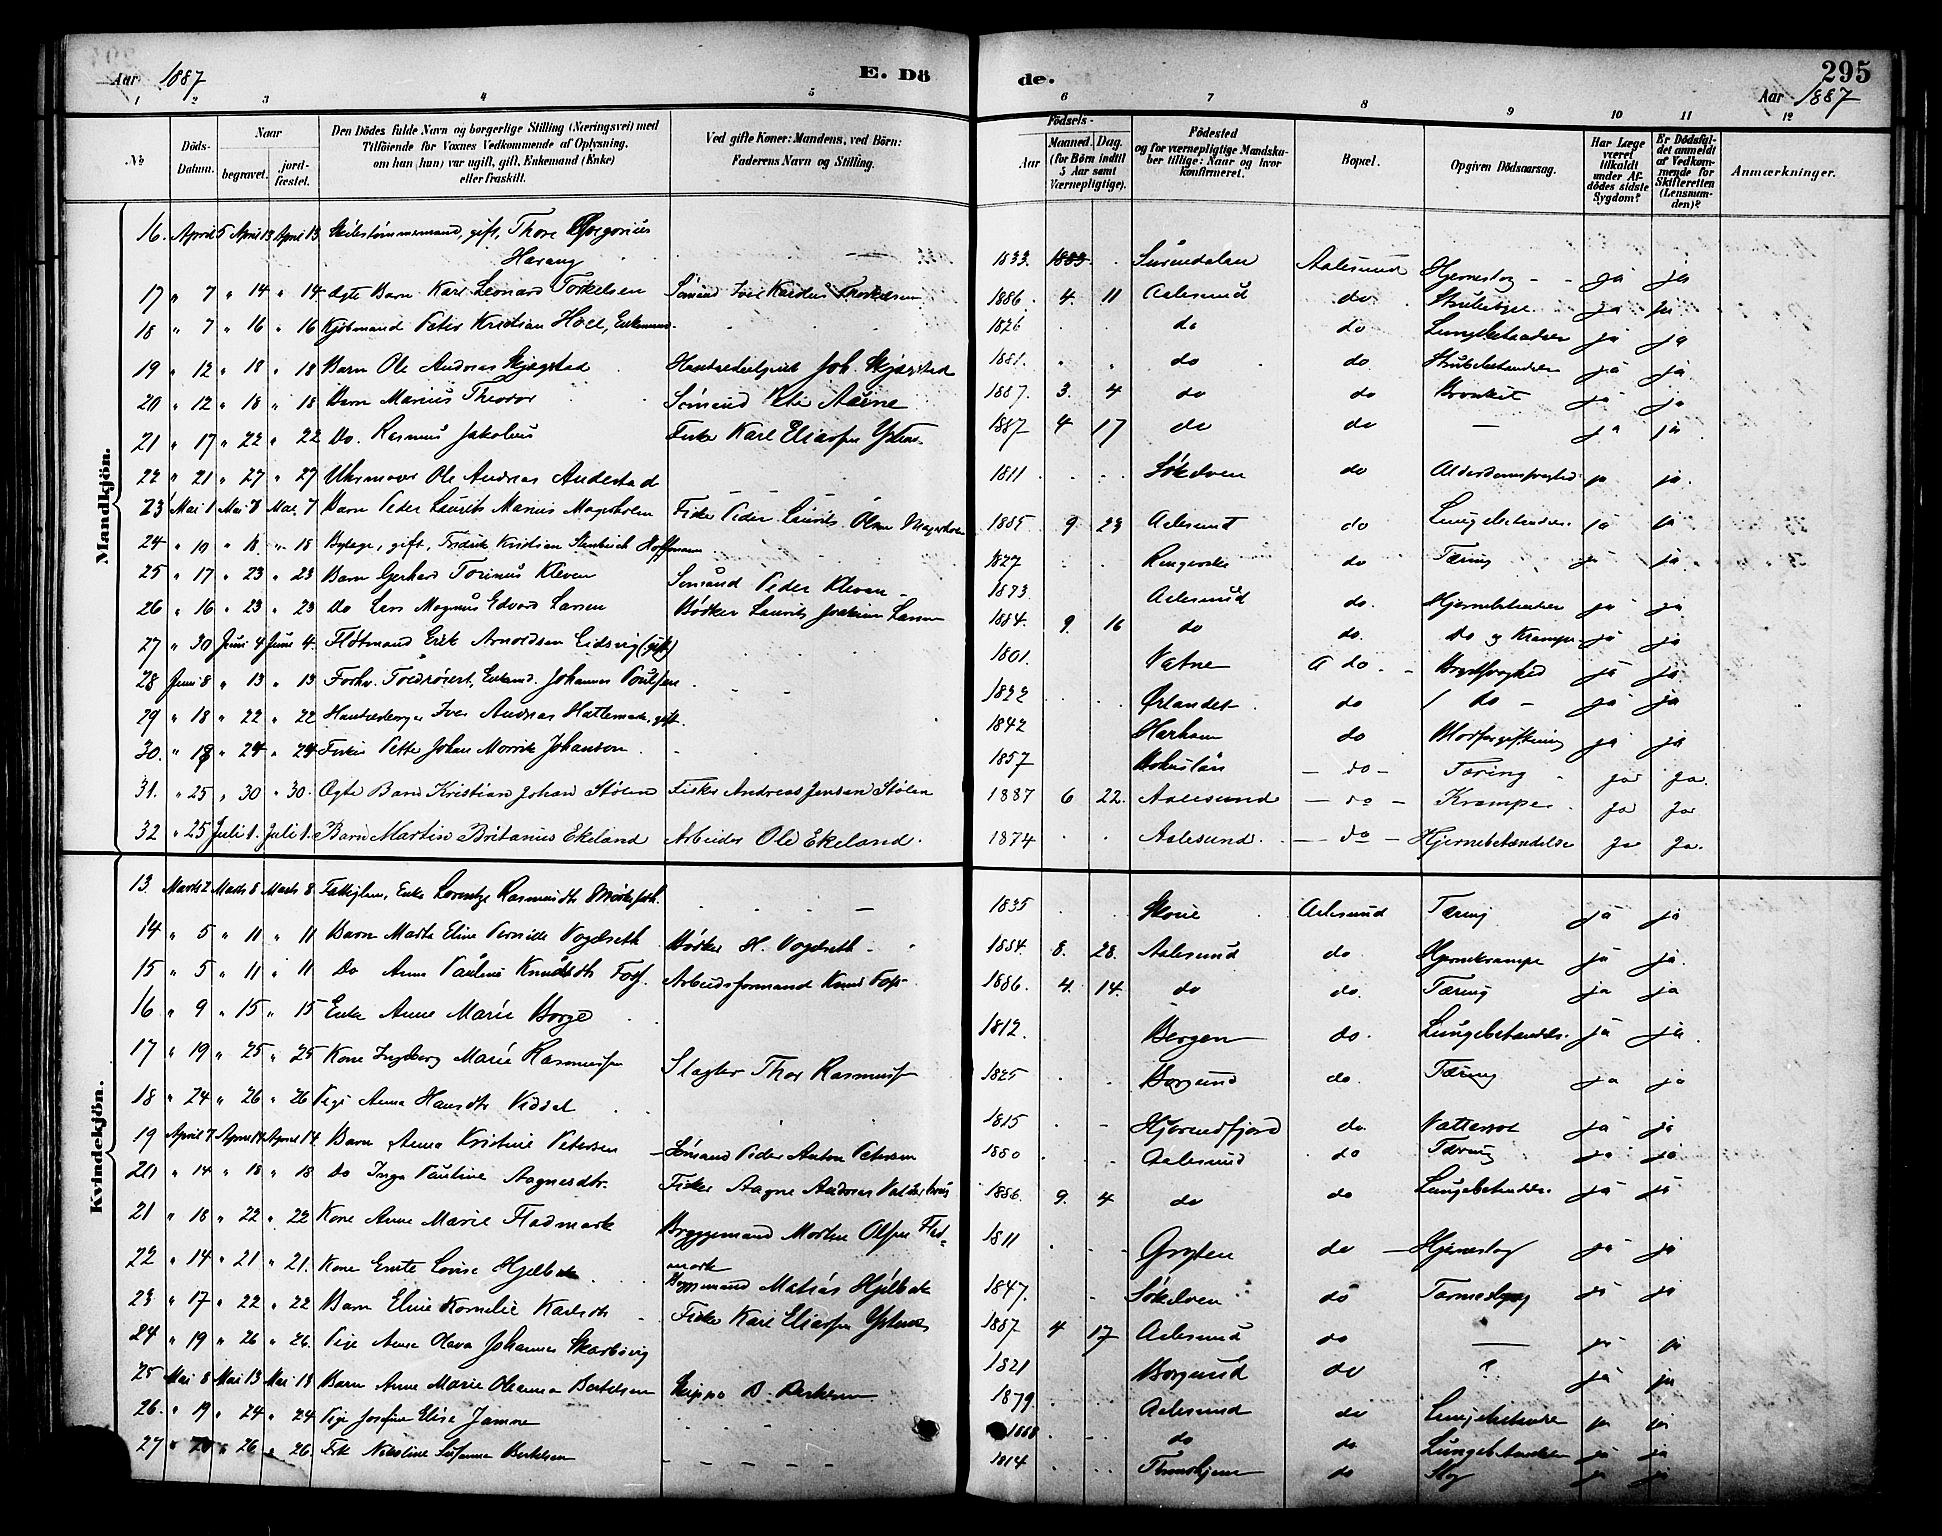 Aar 1887 E. Dö de. 295
Aar 1887
1 2 3 4 5 6 7 8 9 10 11 12
№
Döds-Datum.
Naar
begravet.
jord-fæstet.
Den Dödes fulde Navn og borgerlige Stilling (Næringsvei) med
Tilföiende for Voxnes Vedkommende af Oplysning,
om han (hun) var ugift, gift, Enkemand (Enke)
eller fraskilt.
Ved gifte Koner: Mandens, ved Börn:
Faderens Navn og Stilling.
Födsels-
Aar
Maaned. Dag.
(for Börn indtil
5 Aar samt
Værnepligtige).
Födested
og for værnepligtige Mandska-
ber tillige: Naar og hvor
konfirmeret.
Bopæl.
Opgiven Dödsaarsag.
Har Læge
været
tilkaldt
under Af-
dödes sidste
Sygdom?
Er Dödsfal-
det anmeldt
af Vedkom-
mende for
Skifteretten
(Lensman-
den)?
Anmærkninger.
Mandkjön.
16. April 5 April 13 April 13 gift, Thore Gregorius
Harang 1833. Surendalen Aalesund Hjerneslag ja ja
17 " 7 " 14 " 14 Ægte Barn Karl Leonard Torkelsen Sömand 1886. 4. 11 Aalesund do. Strubehoste ja ja
18 " 7 " 16 " 16 Kjöbmand Peter Kristian Hoel, Enkemand. 1826 do do Lungebetændelse ja ja
19 " 12 " 18 " 18 Barn Ole Andreas Skjegstad Joh. Skjegstad 1881. do do Strubebetændelse ja ja.
20 " 12 " 18 " 18 Barn Marius Theodor Sömand Peter Aarne 1887. 3. 4 do do Bronkit ja ja
21 " 17 " 22 " 22 Do. Rasmus Jakobus Fisker Karl Eliassen Ystenes. 1887 4 17 do do — ja ja
22 " 21 " 27 " 27 Uhrmager Ole Andreas Andestad 1811 Sökelven do Alderdomssvaghed ja ja.
23 Mai 1 Mai 7 Mai 7 Barn Peder Laurits Marius Magerholm Fisker Peder Laurits Olsen Magerholm 1885 9 23 Aalesund do Lungebetændelse. ja ja
24 " 10 " 18 " 18 Bylæge, gift, Fredrik Kristian Steinbeck Hoffmann 1827 Ringerike do Tæring ja ja.
25 " 17 " 23 " 23 Barn Gerhard Torinus Kleven Sömand Peder Kleven 1873. Aalesund do. Hjernebetændelse ja ja
26 " 16 " 23 " 23 Do Lars Magnus Edvard Larsen Bödker Laurits Joakim Larsen 1884. 9. 16 do do. do og Krampe ja ja
27 " 30 Juni 4 Juni 4. Flötmand Erik Arnoldsen Eidsvig (gift) 1801. Vatne do. Brystsvaghed ja ja
28 Juni 8 " 13 " 13 Forhv. Enkemd. Johannes Poulsen 1822 Ørlandet do do ja ja
29 " 18 " 22 " 22 Iver Andreas Hattemark, gift. 1842 Harham do Blodforgiftning ja ja
30. " 18 " 24 " 24 Fisker Petter Johan Morrik Johanson 1857 Bohuslän — do — Tæring ja ja.
31. " 25 " 30 " 30. Ægte Barn Kristian Johan Stölen Fisker Andreas Jensen Stölen 1887 6 22. Aalesund — do — Krampe ja ja
32 " 25 Juli 1. Juli 1. Barn Martin Britanius Ekeland Arbeider Ole Ekeland. 1874 Aalesund. — do — Hjernebetændelse ja ja.
Kvindekjön.
13. Marts 2 Marts 8 Marts 8 Fattiglem, Enke Lorentze Rasmusdtr 1835 Skone Aalesund Tæring ja ja
14 " 5 " 11 " 11 Barn Marta Eline Pernille Vogdseth Bödker H. Vogdseth 1884. 8. 28. Aalesund do. Hjernekrampe ja ja.
15 " 5 " 11 " 11 Do Anna Pauline Knudsdtr Foss. Arbeidsformand Knud Foss 1886. 4. 14. do do. Tæring ja ja
16 " 9 " 15 " 15 Enke Anne Marie Borge 1812. Bergen do. Lungebetændelse. ja ja.
17 " 19 " 25 " 25 Kone Ingeborg Marie Rasmussen Slagter Thor Rasmussen 1825 Borgund do. Tæring ja ja
18 " 24 " 26 " 26 Pige Anna Hansdtr Viddal 1815 Hjörundfjord do. Vattersot ja ja
19 April 7 April 14 April 14 Barn Anna Kristine Petersen Sömand Peder Anton Petersen 1880 Aalesund do Tæring ja ja
20 " 14 " 18 " 18 Do Inga Pauline Aagnesdtr. Fisker Aagne Andreas 1886. 9. 4 do do Lungebetændelse. ja ja
21 " 18 " 22 " 22 Kone Anne Marie Fladmark Bryggemand Morten Olsen Flad-
mark 1811 Gryten do — Hjerneslag ja ja
22 " 14 " 21 " 21. Kone Louise Hjelbak Bryggemand Matias Hjelbak 1847. Sökelven do Tarmeslyng ja ja
23 " 17 " 22 " 22 Barn Eline Kornelie Karlsdtr Fisker Karl Eliassen Ystenes 1887 4 17 Aalesund do — ja ja
24 " 19 " 26 " 26. Pige Anna Olava Johannes Skarbövig 1821 Borgund do ? ja ja
25 Mai 8 Mai 13 Mai 13 Barn Anne Marie Oleanna Bertelsen Skipper 1879. Aalesund do Lungebetændelse ja ja
26. " 19 " 24 " 24 Pige Josefine Elise Jamne do do Lungebetændelse ja ja
27 " 20 " 26 " 26. Nikoline Susanna Bertelsen 1814 Thronhjem do Slag ja ja